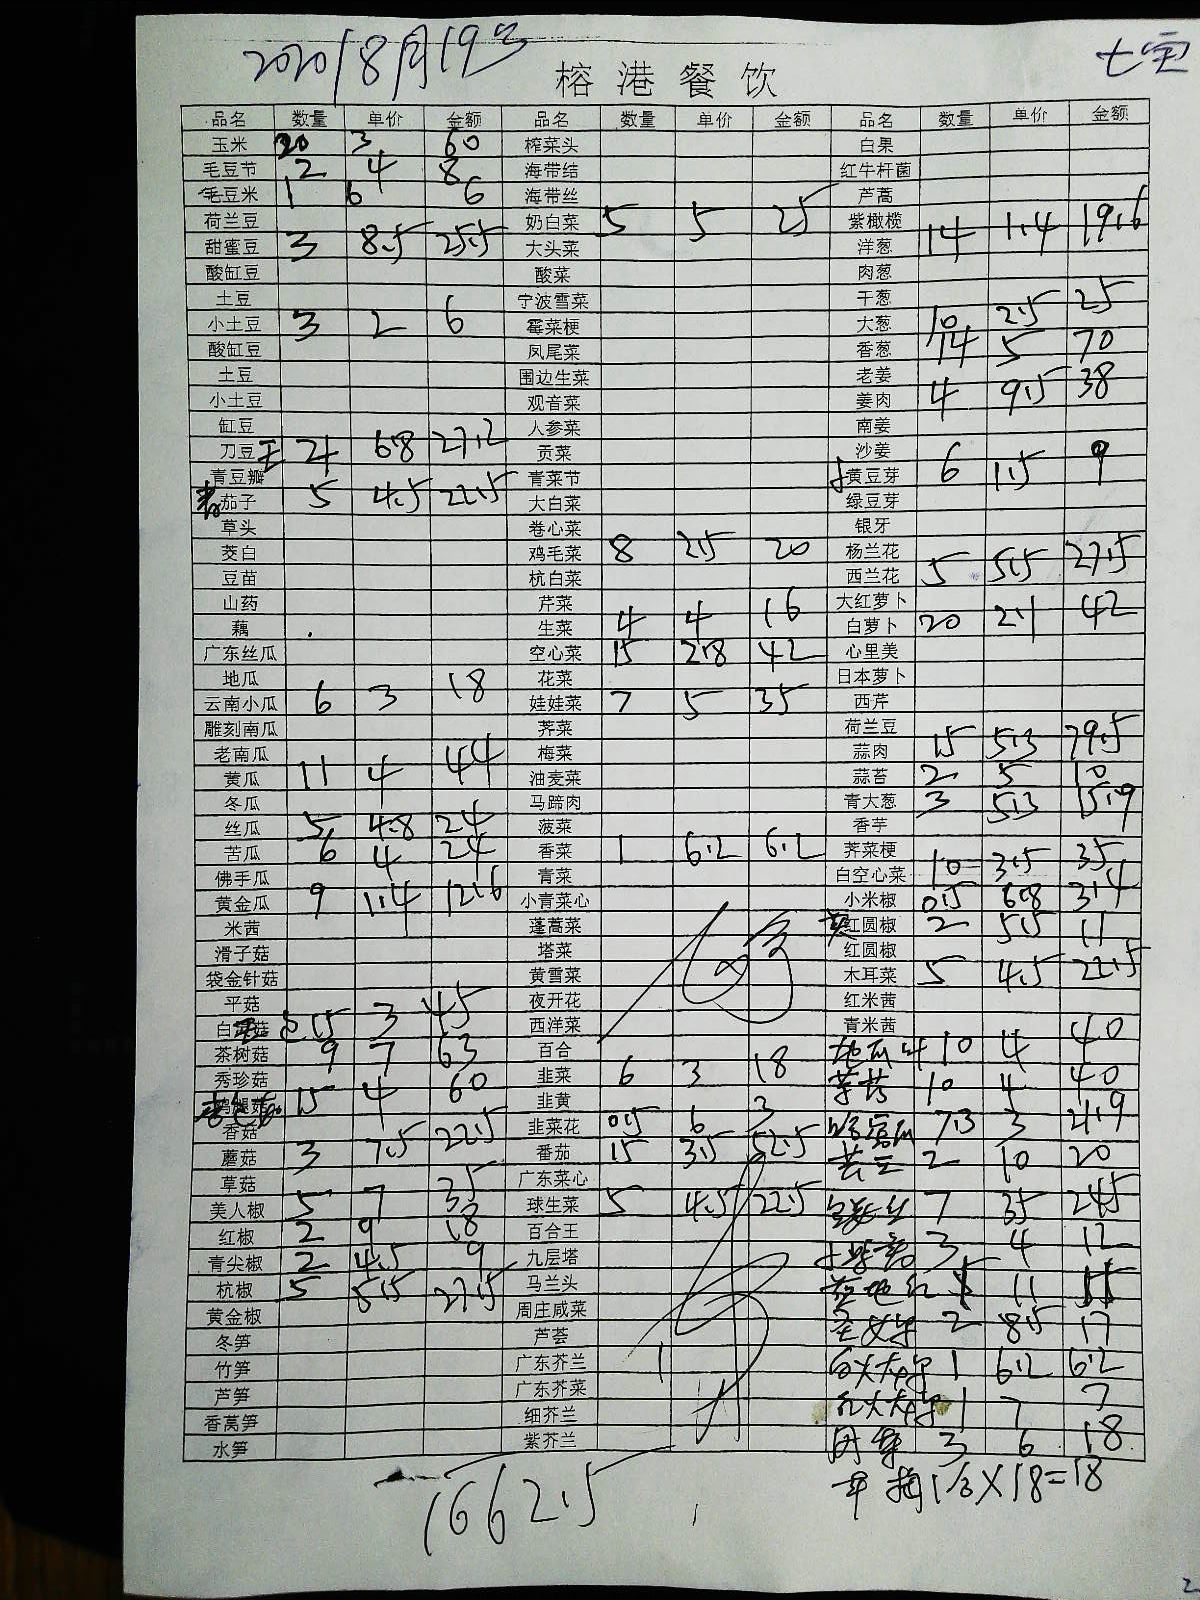 2020/8月19号
七宝
榕港餐饮
品名 数量 单价 金额 品名 数量 单价 金额 品名 数量 单价 金额
玉米 20 3 60 榨菜头 白果
毛豆节 2 4 8 海带结 红牛杆菌
毛豆米 1 6 6 海带丝 芦蒿
荷兰豆 奶白菜 5 5 25 紫橄榄
甜蜜豆 3 8.5 25.5 大头菜 洋葱 14 1.4 19.6
酸缸豆 酸菜 肉葱
土豆 宁波雪菜 干葱
小土豆 3 2 6 霉菜梗 大葱 10 2.5 25
酸缸豆 凤尾菜 香葱 14 5 70
土豆 围边生菜 老姜
小土豆 观音菜 姜肉 4 9.5 38
缸豆 人参菜 南姜
刀豆 4 6.8 27.2 贡菜 沙姜
青豆瓣 青菜节 黄豆芽 6 1.5 9
茄子 5 4.5 22.5 大白菜 绿豆芽
草头 卷心菜 银牙
茭白 鸡毛菜 8 2.5 20 杨兰花
豆苗 杭白菜 西兰花 5 5.5 27.5
山药 芹菜 大红萝卜
藕 生菜 4 4 16 白萝卜 20 2.1 42
广东丝瓜 空心菜 15 2.8 42 心里美
地瓜 花菜 日本萝卜
云南小瓜 6 3 18 娃娃菜 7 5 35 西芹
雕刻南瓜 荠菜 荷兰豆
老南瓜 梅菜 蒜肉 15 5.3 79.5
黄瓜 11 4 44 油麦菜 蒜苔 2 5 10
冬瓜 马蹄肉 青大葱 3 5.3 15.9
丝瓜 5 4.8 24 菠菜 香芋
苦瓜 6 4 24 香菜 1 6.2 6.2 荠菜梗
佛手瓜 青菜 白空心菜 10 3.5 35
黄金瓜 9 1.4 12.6 小青菜心 小米椒 0.5 6.8 3.4
米茜 蓬蒿菜 红圆椒 2 5.5 11
滑子菇 塔菜 红圆椒
袋金针菇 黄雪菜 木耳菜 5 4.5 22.5
平菇 夜开花 红米茜
15 3 45 西洋菜 青米茜
茶树菇 9 7 63 百合 10 4 40
秀珍菇 韭菜 6 3 18 10 4 40
15 4 60 韭黄
香菇 韭菜花 0.5 6 3 7.3 3 21.9
蘑菇 3 7.5 22.5 番茄 15 3.5 52.5 2 10 20
草菇 广东菜心
美人椒 5 7 35 球生菜 5 4.5 22.5 7 3.5 24.5
红椒 2 9 18 百合王
青尖椒 2 4.5 9 九层塔 3 4 12
杭椒 5 5.5 27.5 马兰头 11
黄金椒 周庄咸菜 2 8.5 17
冬笋 芦荟
竹笋 广东芥兰 1 6.2 6.2
芦笋 广东芥菜 1 7 7
香莴笋 细芥兰
水笋 紫芥兰 3 6 18
X18=18
1662.5